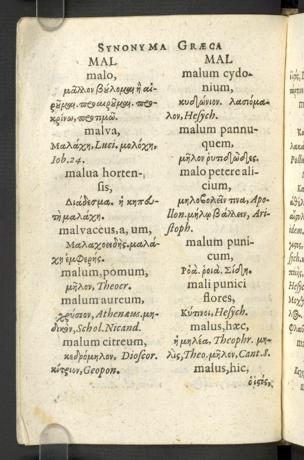 SYNONYMA GRÆCA
MAL
malo,
μᾶλλον βούλομαι ἢ αἱ-
ροῦμαι. προαιροῦμαι. προ-
κρίνω, προτιμῶ.
malva,
Μαλάχη, Luci. μολόχη,
Iob. 24.
malua horten-
sis,
Διάδεσμα. ἡ κηπευ-
τὴ μαλάχη.
malvaceus, a, um,
Μαλαχοειδής. μαλά-
χῃ ἐμφερής.
malum, pomum,
μῆλον, Theocr.
malum aureum,
Athenæus. μη-
Schol. Nicand.
malum citreum,
κεδρόμηλον, Dioscor.
κίτριον, Geopon.
MAL
malum cydo-
nium,
κυδώνιον. 
λον, Hesych.
malum pannu-
quem,
μῆλον ῥυτιδῶδες.
malo petere ali-
cium,
μηλοβολεῖν τινα, Apo-
llon. μήλῳ βάλλειν, Ari-
stoph.
malum puni-
cum,
Ῥόα. ῥοιά. Σίδη.
mali punici
flores,
Κύτινοι, Hesych.
malus, hæc,
ἡ μηλέα, Theophr. μη-
λὶς, Theo. μῆλον, Cant. 8.
malus, hic,
ὁ ἱστός,